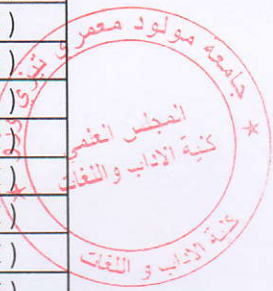 جامعة مولود معمري تيزي وزو
المجلس العلمي
كلية الآداب واللغات
كلية الآداب و اللغات
)
)
)
)
)
)
)